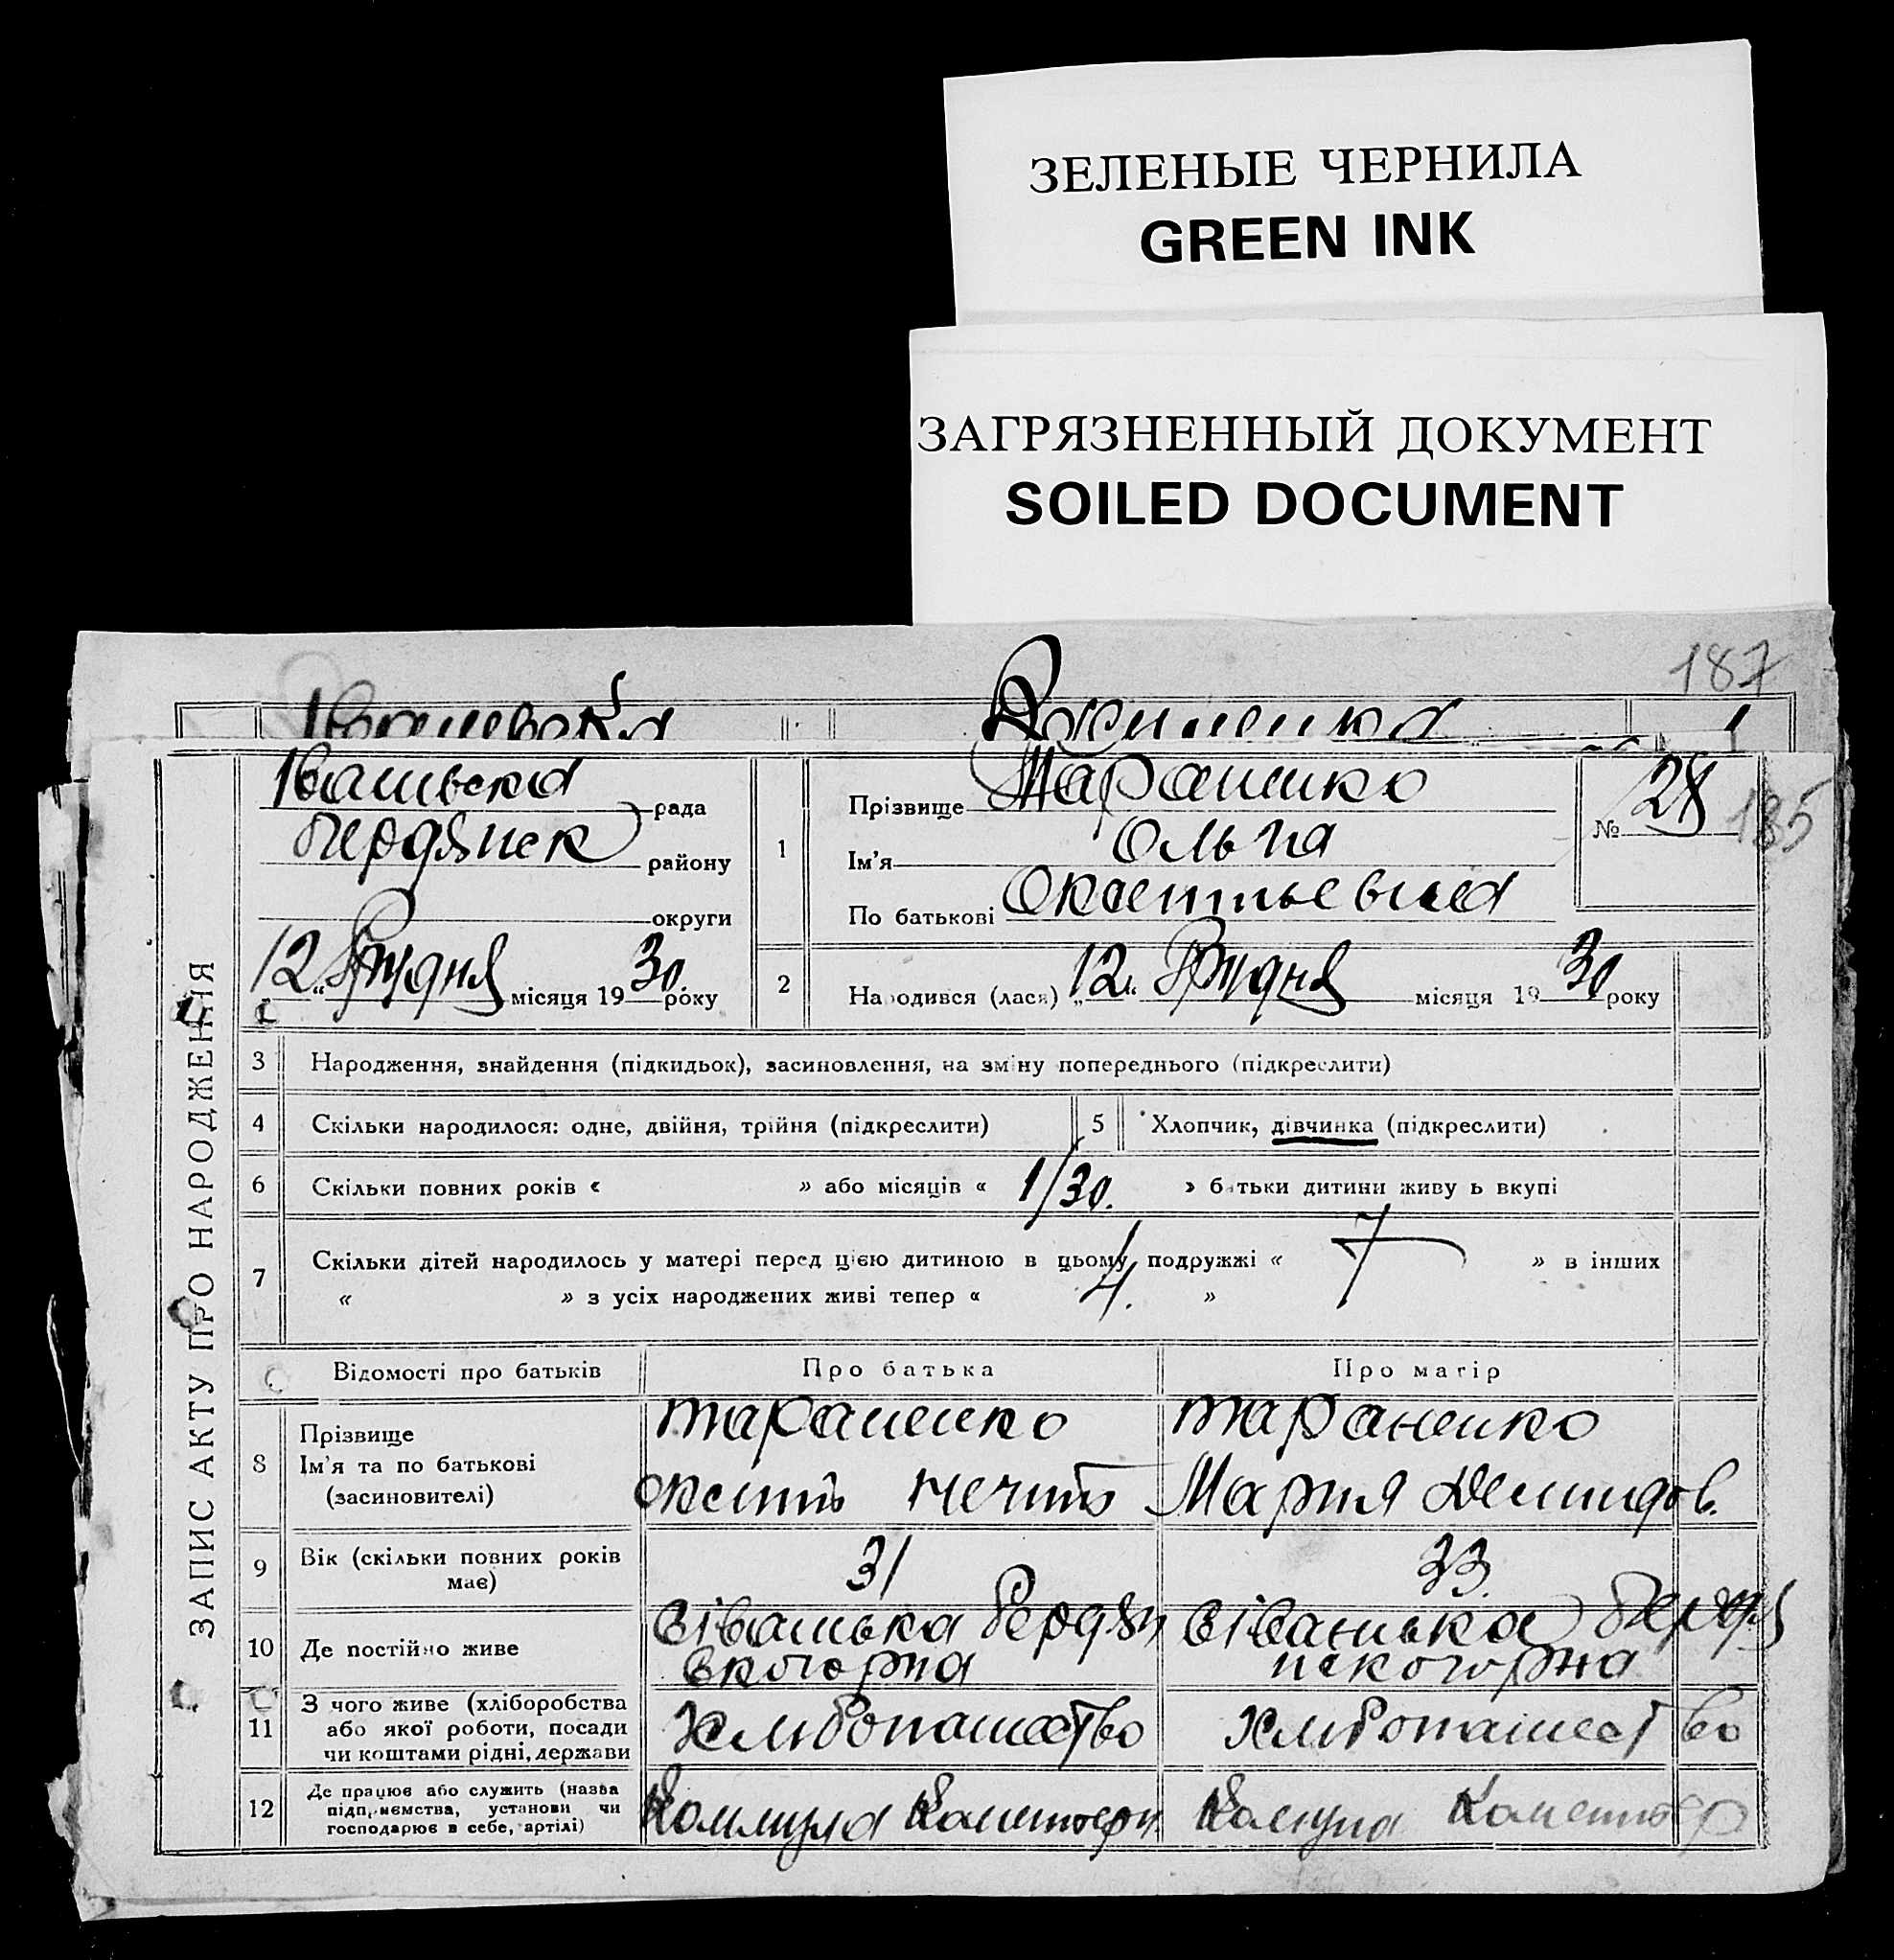 ЗЕЛЕНЫЕ ЧЕРНИЛА
GREEN INK
ЗАГРЯЗНЕННЫЙ ДОКУМЕНТ
SOILED DOCUMENT
187
ЗАПИС АКТУ ПРО НАРОДЖЕННЯ
рада
Бердянск району
округи
12 Грудня місяця 1930 року
1
Прізвище Тараненко
Ім'я Ольга
По батькові
№ 28
185
2
Народився (лася) „12“ Грудня місяця 1930 року
3 Народження, знайдення (підкидьок), засиновлення, на зміну попереднього (підкреслити)
4 Скільки народилося: одне, двійня, трійня (підкреслити)
5 Хлопчик, дівчинка (підкреслити)
6 Скільки повних років « » або місяців « 1/30. » батьки дитини живуть вкупі
7 Скільки дітей народилось у матері перед цією дитиною в цьому подружжі « 7 » в інших
« » з усіх народжених живі тепер « 4. »
Відомості про батьків Про батька Про матір
8 Прізвище
Ім'я та по батькові
(засиновителі)
Тараненко
Тараненко
Мария Демидов.
9 Вік (скільки повних років має)
31
33.
10 Де постійно живе
11 З чого живе (хліборобства
або якої роботи, посади
чи коштами рідні, держави
12 Де працює або служить (назва
підприємства, установи чи
господарює в себе, артілі)
Коммуна
Комуна